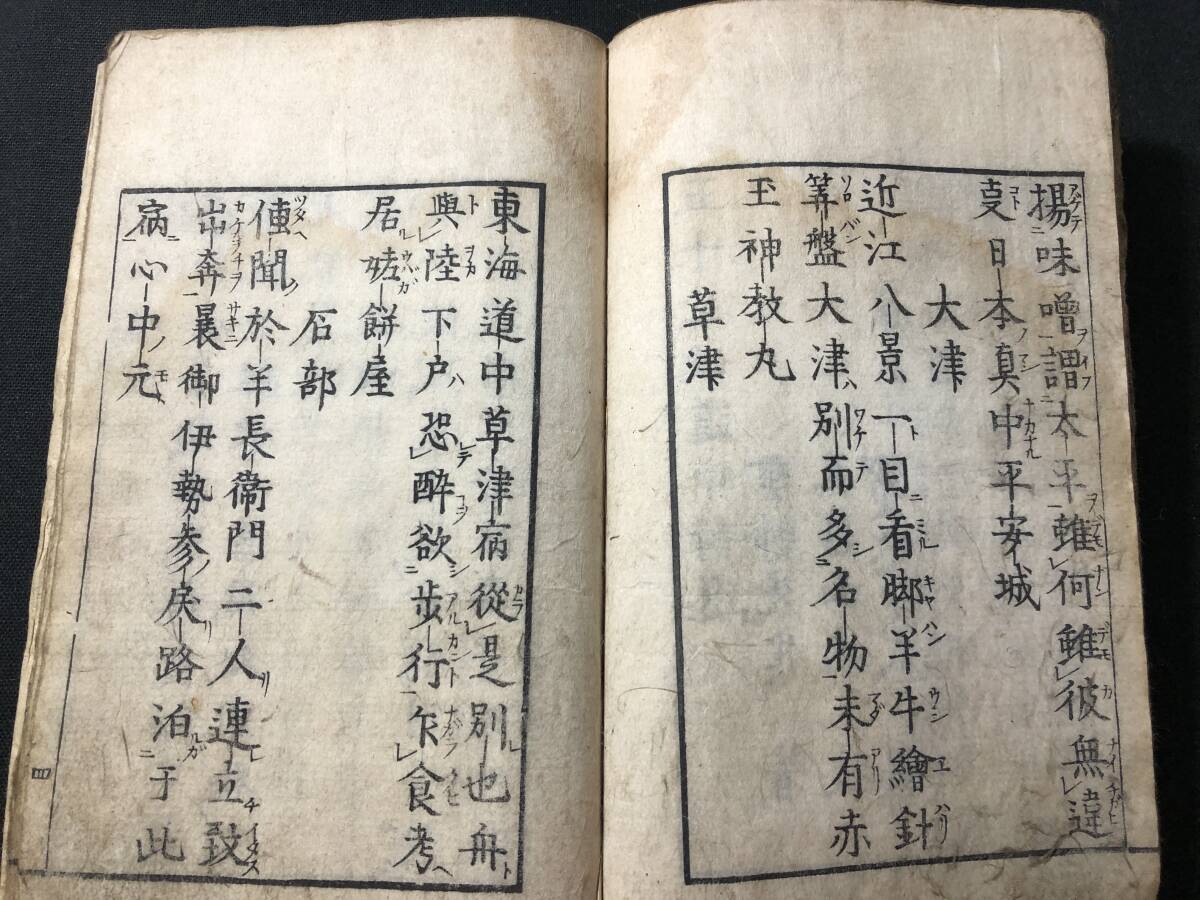 揚味噌謂太平雖何雖彼無違
㕝日本真中平安城
大津
近江八景一目看脚半牛繪針
筭盤大津別而多名物未有赤
玉神教丸
草津
東海道中草津宿從是別也舟
與陸下戸恐醉欲歩行乍食考
居姥餅屋
石部
傳聞於半長衛門二人連立致
出奔曩御伊勢参戻路泊于此
病心中元
四